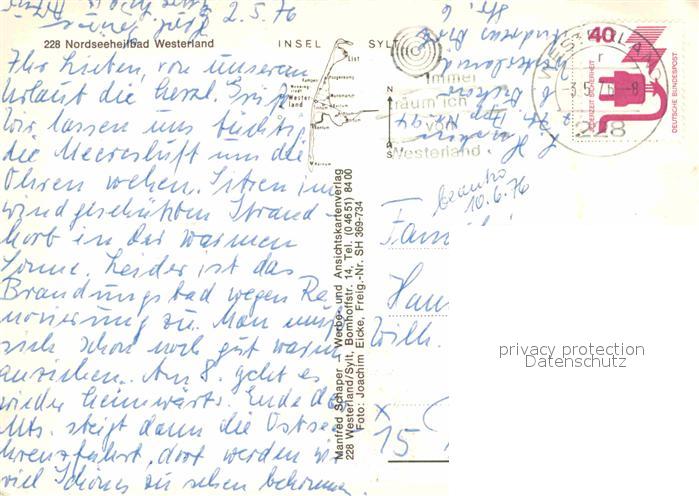 2.5.76
228 Nordseeheilbad Westerland INSEL SYLT
Ihr Lieben, von unserem
Urlaub die herzl. Grüße
Wir lassen uns tüchtig
die Meeresluft um die
Ohren wehen. Sitzen im
windgeschützten Strand-
korb in der warmen
Sonne. Leider ist das
Brandungsbad wegen Re-
novierung zu. Man muß
sich schon noch gut warm
anziehen. Am 8. geht es
wieder heimwärts. Ende des
Mts. steigt dann die Ostsee
kreuzfahrt, dort werden wir
viel Schönes zu sehen bekommen.
List
Kampen
Wester-
land
N
S
Immer
träum ich
von
Westerland
WESTERLAND
3.5.76-8
228
40
JEDERZEIT SICHERHEIT
DEUTSCHE BUNDESPOST
beantw.
10.6.76
Manfred Schaper – Werbe- und Ansichtskartenverlag
228 Westerland/Sylt, Bomhoffstr. 14, Tel. (0 46 51) 84 00
Foto: Joachim Eicke, Freig.-Nr. SH 369-734
Fam
Han
Wilh.
x
15
privacy protection
Datenschutz